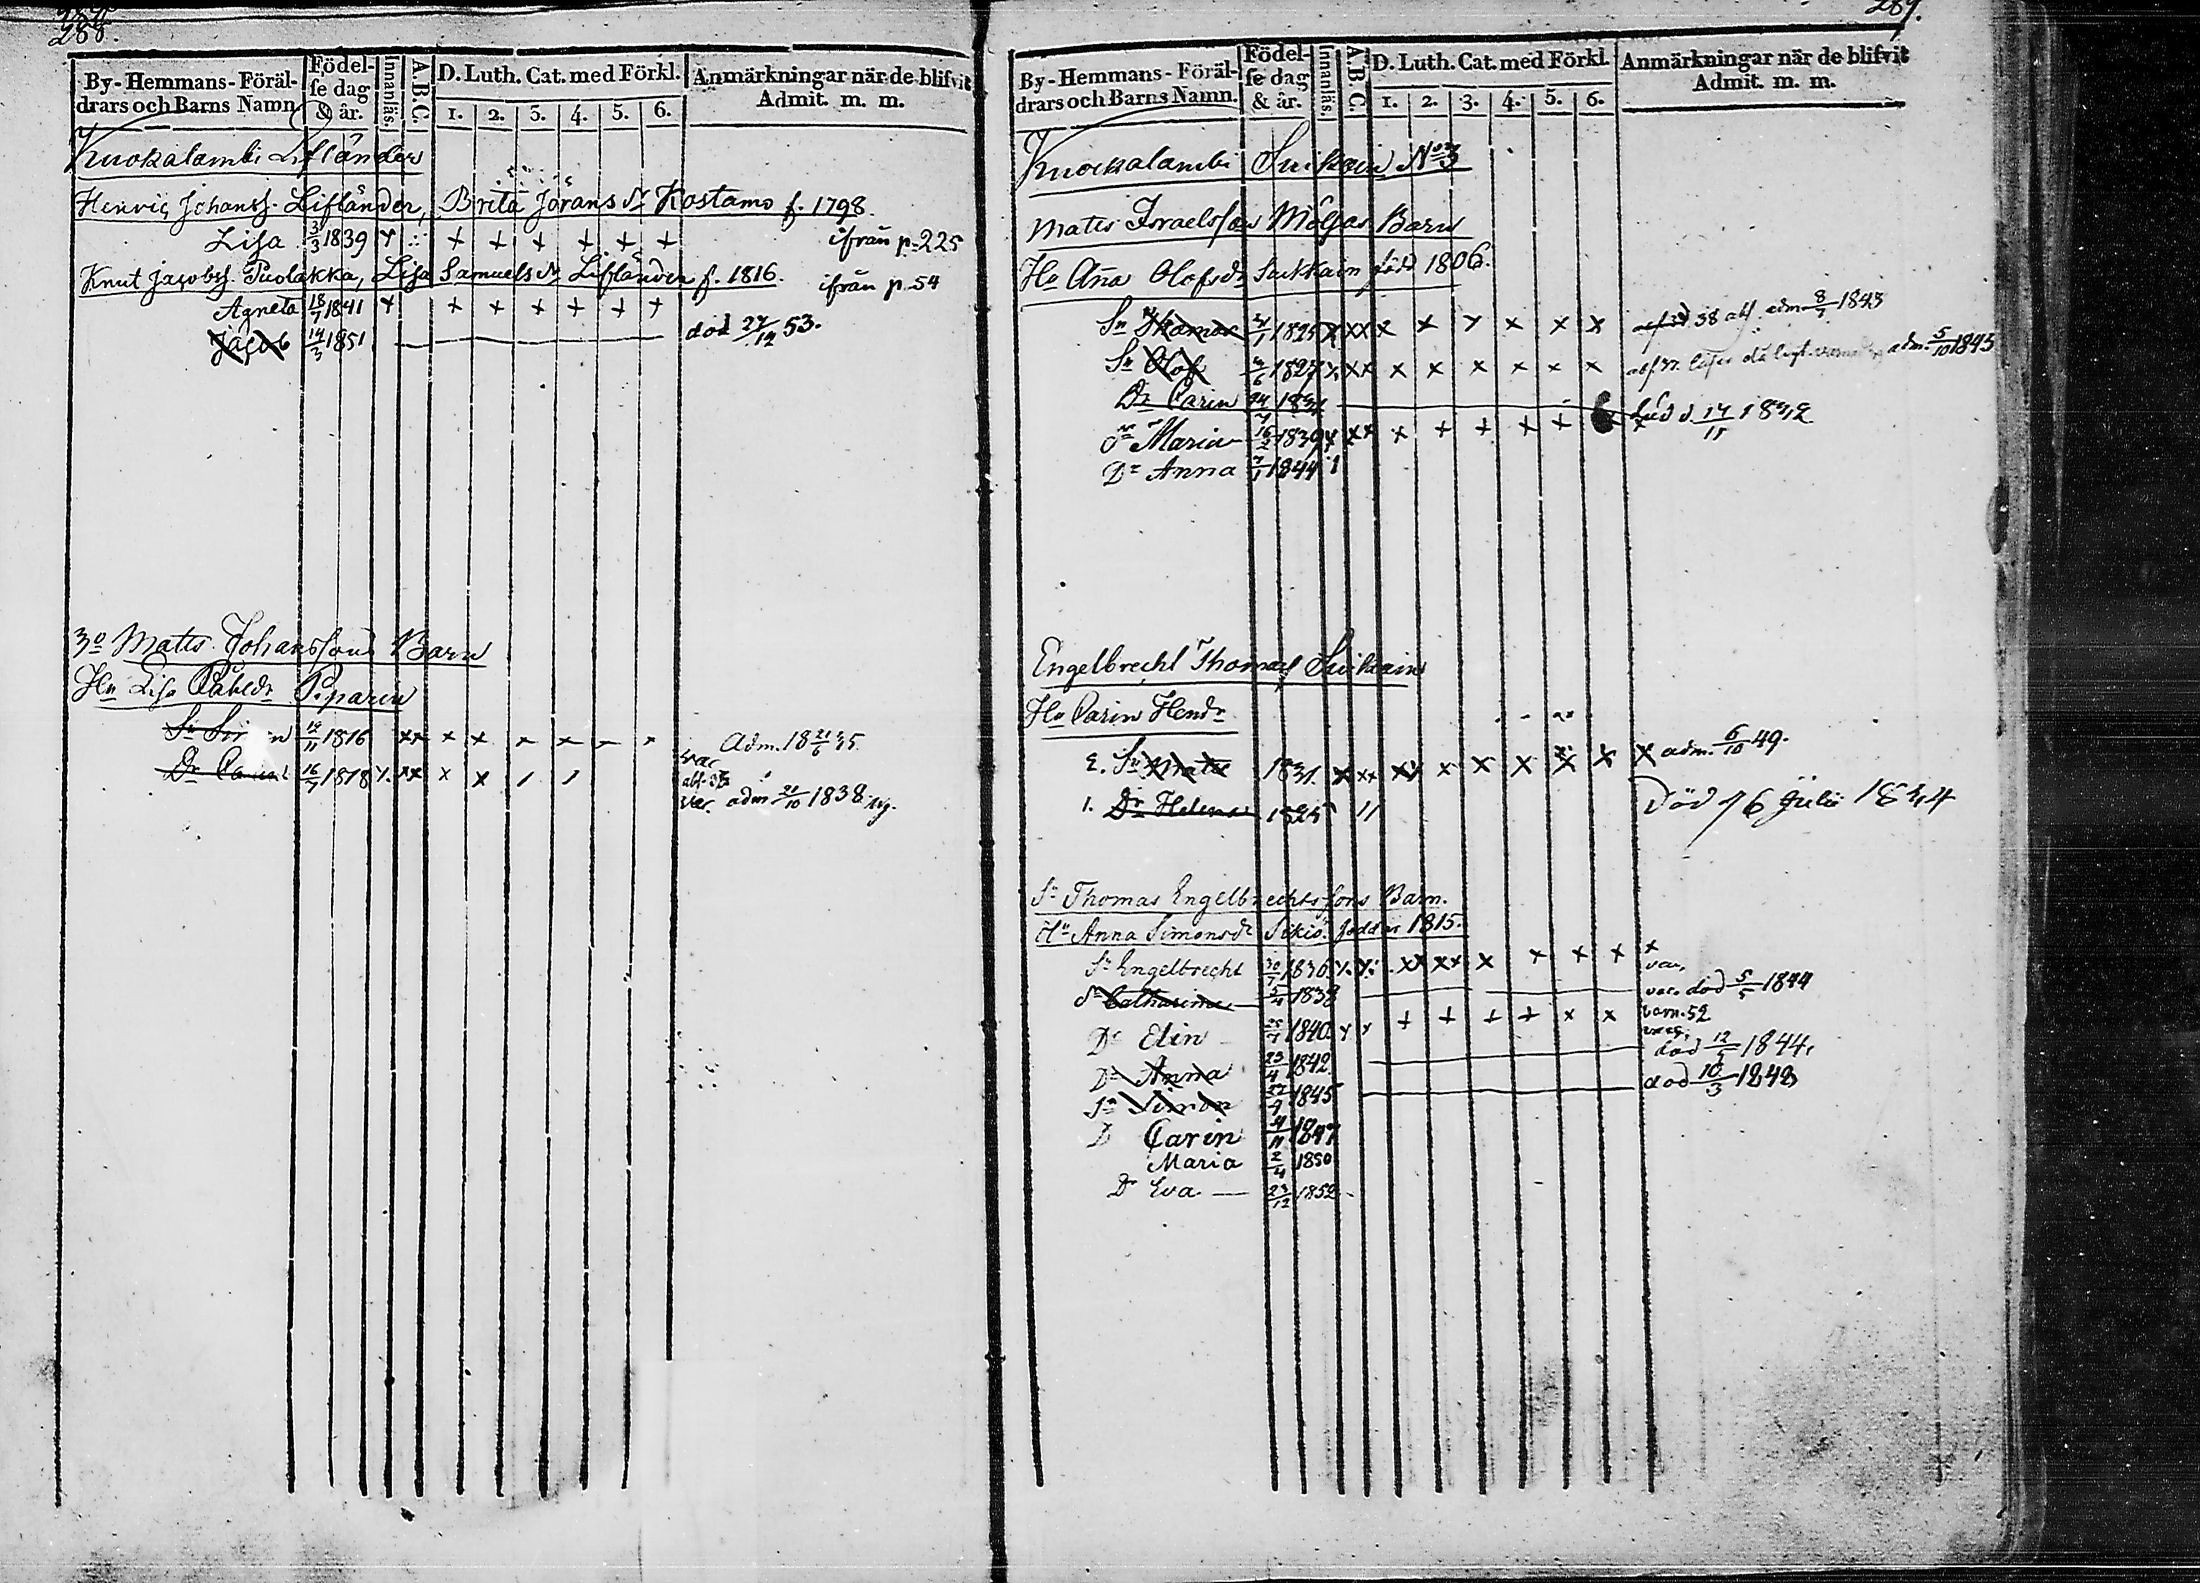 288.
By-Hemmans-Föräl-
drars och Barns Namn
Födel-
se dag
& år.
Innanläs.
A.B.C.
D. Luth. Cat. med Förkl.
1. 2. 3. 4. 5. 6.
Anmärkningar när de blifvit
Admit. m. m.
Kuokalambi Lifländer
Henric Johanss. Lifländer, Brita Jörans dr Kostamo f. 1798.
Lisa 3/3 1839 + + + + + + ifrån p. 225
Knut Jacobss. Puolakka, Lisa Samuels dr Lifländer f. 1816. ifrån p. 54
Agneta 18/7 1841 + + + + + + +
Jacob 14/3 1851 död 27/12 53.
3o Matts Johanssons Barn
Hu Lisa Påhlsdr Piparin
Sn 19/11 1816 xx x x x x x x Adm. 18 21/6 35
Dr Carin 16/7 1818 x xx x x / / var. adm. 21/10 1838
289.
By-Hemmans-Föräl-
drars och Barns Namn.
Födel-
se dag
& år.
Innanläs.
A.B.C.
D. Luth. Cat. med Förkl.
1. 2. 3. 4. 5. 6.
Anmärkningar när de blifvit
Admit. m. m.
Kuockalambi Suikain No 3
Matts Israelsson Mölgas Barn
Hu Anna Olofsdr Suikkain född 1806.
Sn Thomas 1825 x xx x x x x x x 38 abs. adm. 8/7 1843
Sn Olof 1827 x xx x x x x x x adm. 5/10 1845
Dr Carin 24 1831 död d. 14/11 1832
Dr Maria 16/2 1839 x xx x + + + + x
Dr Anna 1844 1
Engelbrecht Thomass Suikain
Hu Carin Hendr
2. Sn Matts 1831. x xx xx x x x x x x adm. 6/10 49.
1. Dr Helena 1825 11 Död 16 Julii 1834
Sn Thomas Engelbrechtssons Barn.
Hu Anna Simonsdr Sikiö född 1815.
Sn Engelbrecht 30/7 1836 xx xx x + x + x
var.
Dr Catharina 5/4 1838 var. död 5/5 1844
Dr Elin 1840 x x + + + + x x varn. 52
Dr Anna 23/4 1842. död 12/5 1844.
Sn Simon 1845 död 10/3 1848
D Carin 4/11 1847
Maria 2/4 1850
Dr Eva — 23/12 1852